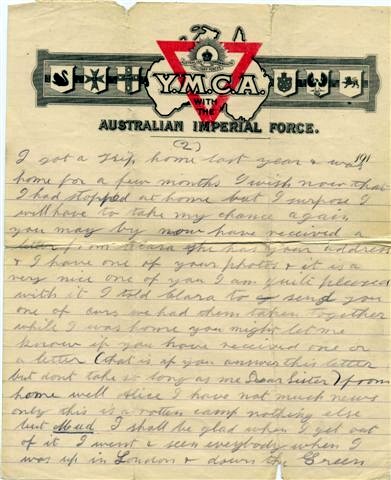 Y.M.C.A.
WITH
THE
AUSTRALIAN IMPERIAL FORCE.
(2)
191
I got a trip home last year & was
home for a few months I wish now that
I had stopped at home but I surpose I
will have to take my chance again
you may by now have received a
letter from Clara she has your address
& I have one of your photos & it is a
very nice one of you I am quite pleased
with it I told Clara to send you
one of ours we had them taken together
while I was home you might let me
know if you have received one or
a letter (that is if you answer this letter
but dont take so long as me Dear Sister) from
home well Alice I have not much news
only this is a rotten camp nothing else
but Mud I shall be glad when I get out
of it I went & seen everybody when I
was up in London & down the Green